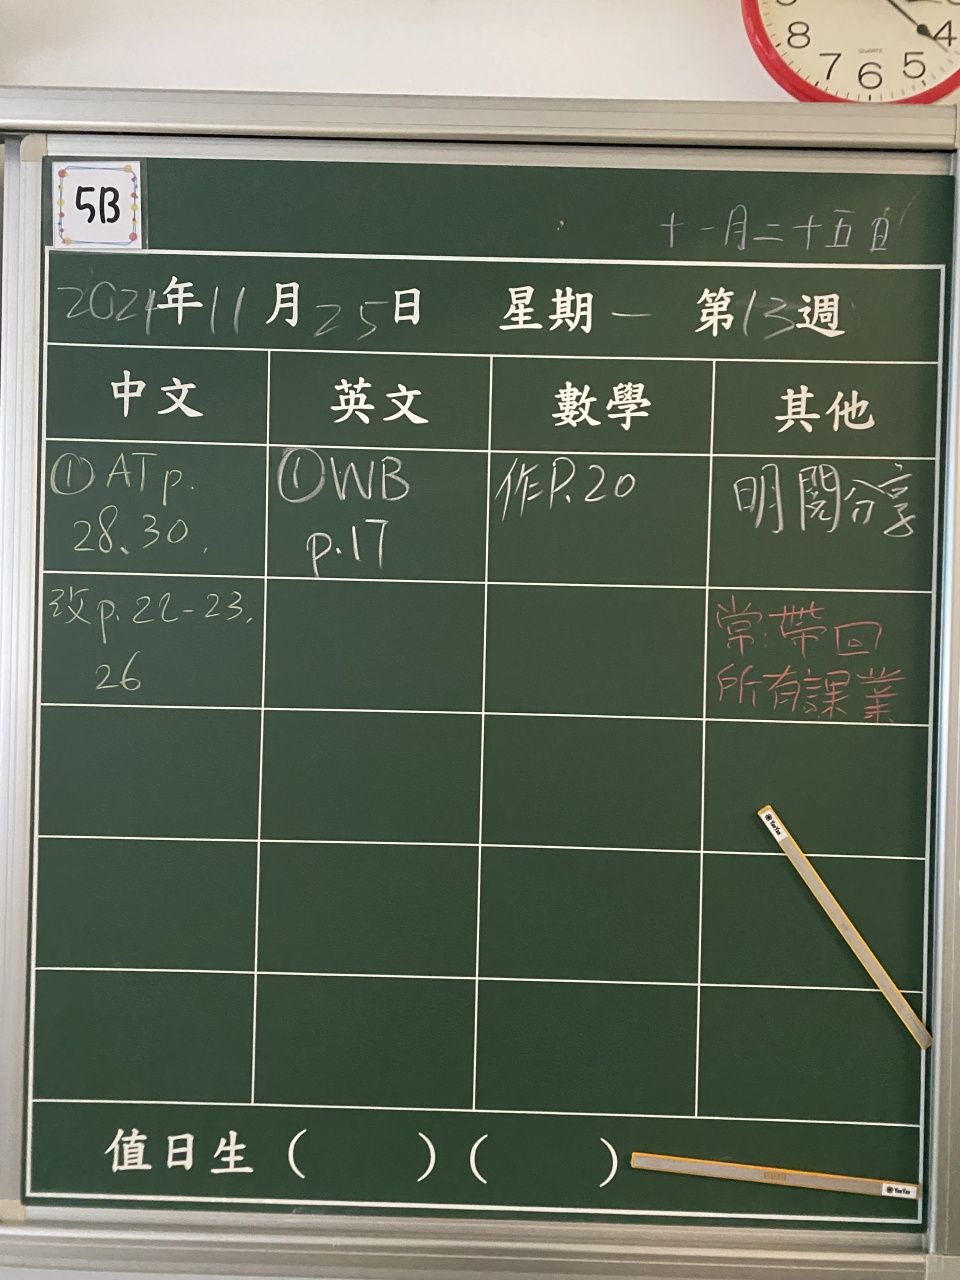 8
7
6
5
4
QUARTZ
5B
十一月二十五日
2024年11月25日 星期一 第13週
中文 英文 數學 其他
①ATp.
28、30.
①WB
p.17
作P.20
明閱分享
改p.22-23.
26
常:帶回
所有課業
值日生( )( )
YanYan
YanYan